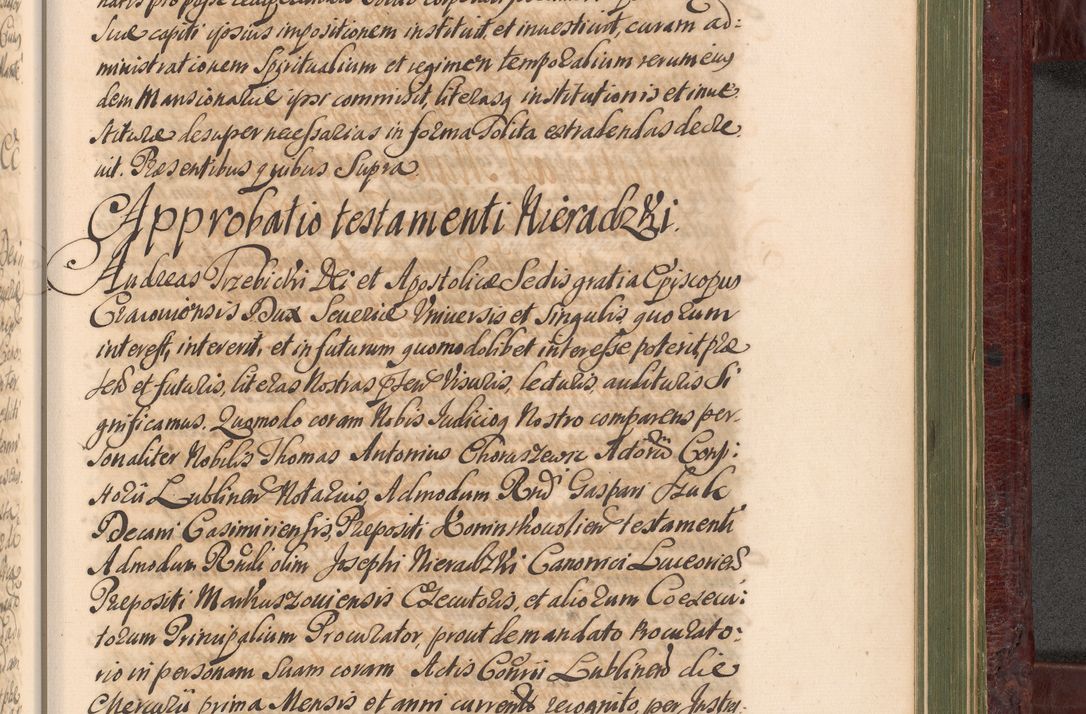 suæ capiti ipsius impositionem instituit, et investiuit, curam ad:
ministrationem Spiritualium et regimen temporalium rerum eius
dem Mansionariæ ipsi commisit, literasq institutionis et inue
stituræ desuper necessarias in forma solita extradendas decre
uit. Præsentibus quibus Supra.
Approbatio testamenti Nieradzki.
Andreas Trzebicki Dei et Apostolicæ Sedis gratia Episcopus
Cracouiensis Dux Seueriæ Vniuersis et Singulis, quorum
interest, intererit, et in futurum quomodolibet interesse poterit, præ
sen et futuris, literas Nostras psen Visuris, lecturis, audituris Si
gnificamus. Quomodo coram Nobis Iudicioq Nostro comparens per-
sonaliter Nobilis Thomas Antonius Choruszewic Actorū Consi:
storii Lublinen Notarius, Admodum Rndi Gaspari Szulc
Decani Casimiriensis, Præpositi Konińskouolien testamenti
Admodum Rndi olim Josephi Nieradzki Canonici Luceorien
Præpositi Markuszouiensis Executoris, et aliorum Coexecu:
torum Principalium Procurator, prout de mandato Procurato:
rio in personam Suam coram Actis Consrii Lublinen die
Mercurii prima Mensis et anni current recognito, per Instru: